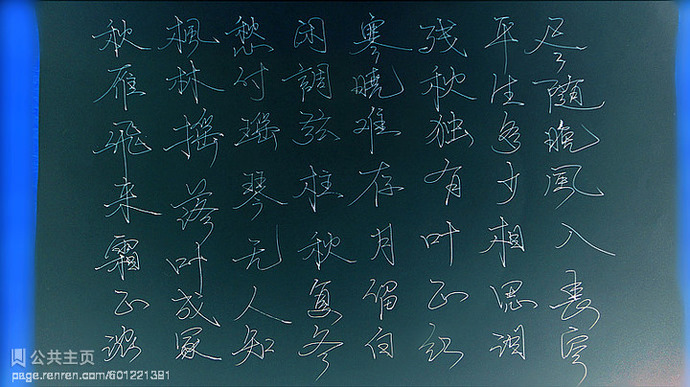 秋雁飛来霜正浓
枫林摇落叶成冢
愁付瑶琴无人知
闲調弦柱秋复冬
寒晓难存月留白
残秋独有叶正红
平生多少相思调
尽随晚风入穹
公共主页
page.renren.com/601221391